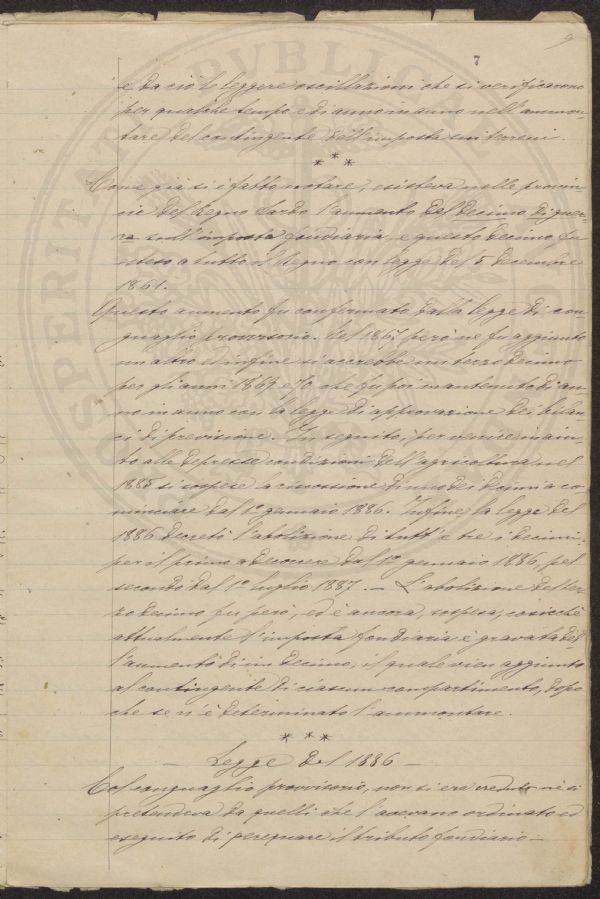 9
7
e da ciò le leggere oscillazioni che si verificarono
per qualche tempo e di anno in anno nell'ammon-
tare del contingente dell'imposta sui terreni.
* * *
Come già si è fatto notare, esisteva nelle provin-
cie del Regno Sardo l'aumento del decimo di guer-
ra sull'imposta fondiaria, e questo decimo fu
esteso a tutto il Regno con legge del 5 dicembre
1861.
Questo aumento fu confermato dalla legge di con-
guaglio provvisorio. Nel però ne fu aggiunto
un altro ed infine si accrebbe un terzo decimo
per gli anni che fu poi mantenuto di an-
no in anno con la legge di approvazione dei bilan-
ci di previsione. In seguito, per venire in aiu-
to alle depresse condizioni dell'agricoltura, nel
1885 si sospese la riscossione di uno dei decimi a co-
minciare dal 1° gennaio 1886. Infine la legge del
1886 decretò l'abolizione di tutt'e tre i decimi:
per il primo a decorrere dal 1° gennaio 1886, pel
secondo dal 1° luglio 1887. — L'abolizione del ter-
zo decimo fu però, ed è ancora, sospesa, cosicchè
attualmente l'imposta fondiaria è gravata del-
l'aumento di un decimo, il quale vien aggiunto
al contingente di ciascun compartimento, dopo
che se n'è determinato l'ammontare.
* * *
— Legge del 1886 —
Col conguaglio provvisorio, non si era creduto nè si
pretendeva da quelli che l'avevano ordinato ed
eseguito di perequare il tributo fondiario —